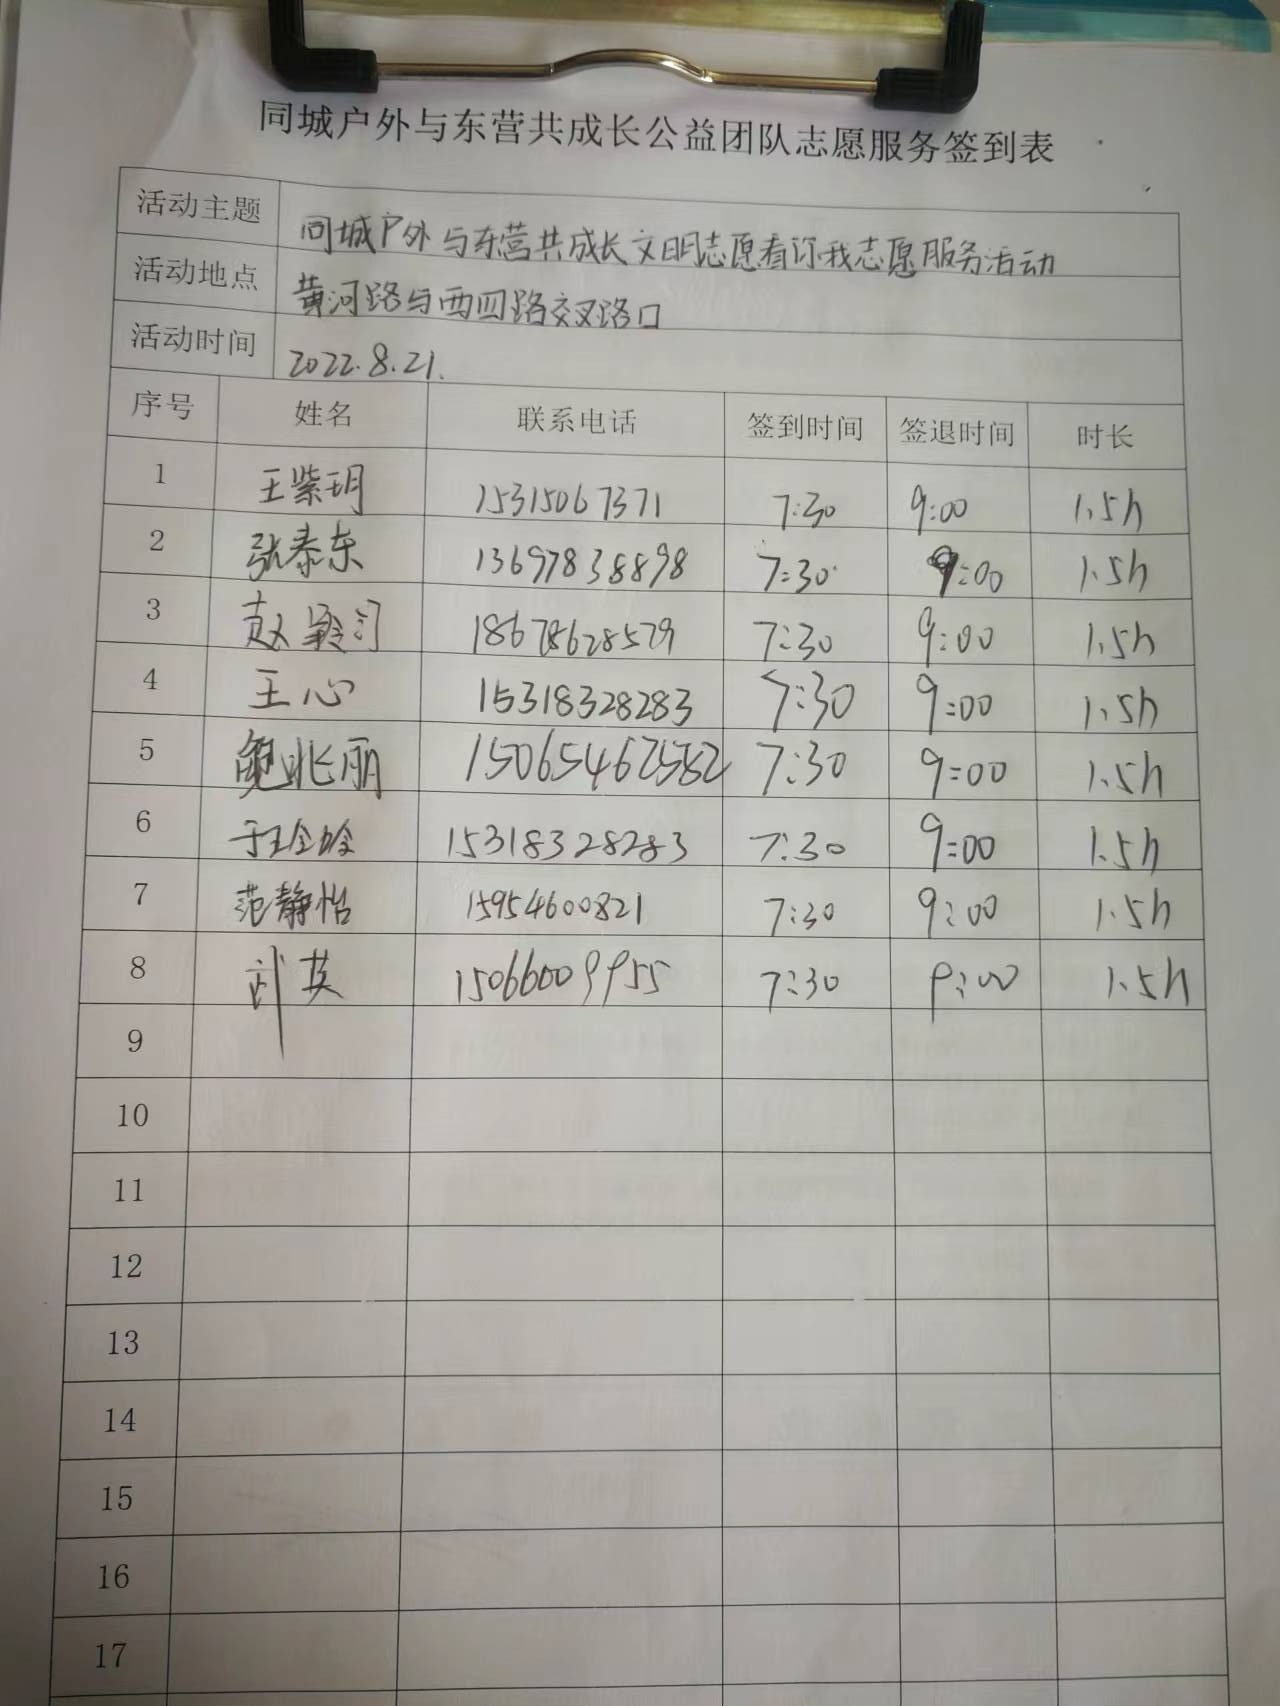 同城户外与东营共成长公益团队志愿服务签到表
活动主题 同城户外与东营共成长文明志愿看你我志愿服务活动
活动地点 黄河路与西四路交叉路口
活动时间 2022.8.21.
序号 姓名 联系电话 签到时间 签退时间 时长
1 王紫玥 15315067371 7:30 9:00 1.5h
2 张泰东 13697838898 7:30 9:00 1.5h
3 赵 18678628579 7:30 9:00 1.5h
4 王心 15318328283 7:30 9:00 1.5h
5 鲍兆丽 15065462582 7:30 9:00 1.5h
6 于玲 15318328283 7:30 9:00 1.5h
7 范静怡 15954600821 7:30 9:00 1.5h
8 武英 15066009955 7:30 9:00 1.5h
9
10
11
12
13
14
15
16
17